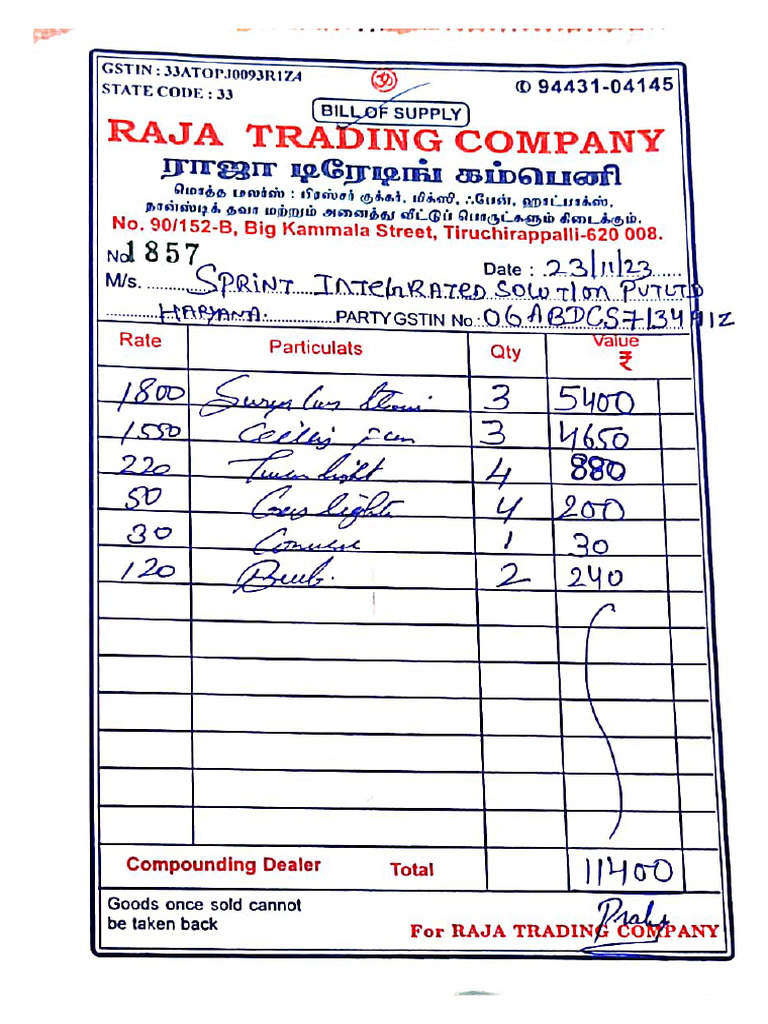 GSTIN : 33ATOPJ0093R1ZA
STATE CODE : 33
ॐ
✆ 94431-04145
BILL OF SUPPLY
RAJA TRADING COMPANY
ராஜா டிரேடிங் கம்பெனி
மொத்த மலர்ஸ் : பிரஸ்சர் குக்கர், மிக்ஸி, ஃபேன், ஹாட்பாக்ஸ்,
நான்ஸ்டிக் தவா மற்றும் அனைத்து வீட்டுப் பொருட்களும் கிடைக்கும்.
No. 90/152-B, Big Kammala Street, Tiruchirappalli-620 008.
No 1857
Date : 23/11/23
M/s. SPRINT INTEGRATED SOLUTION PVT LTD
HARYANA. PARTY GSTIN No. 06ABDCS7134
Rate Particulats Qty Value ₹
1800 3 5400
1550 Ceiling Fan 3 4650
220 light 4 880
50 light 4 200
30 1 30
120 Bulb. 2 240
Compounding Dealer Total 11400
Goods once sold cannot
be taken back
For RAJA TRADING COMPANY